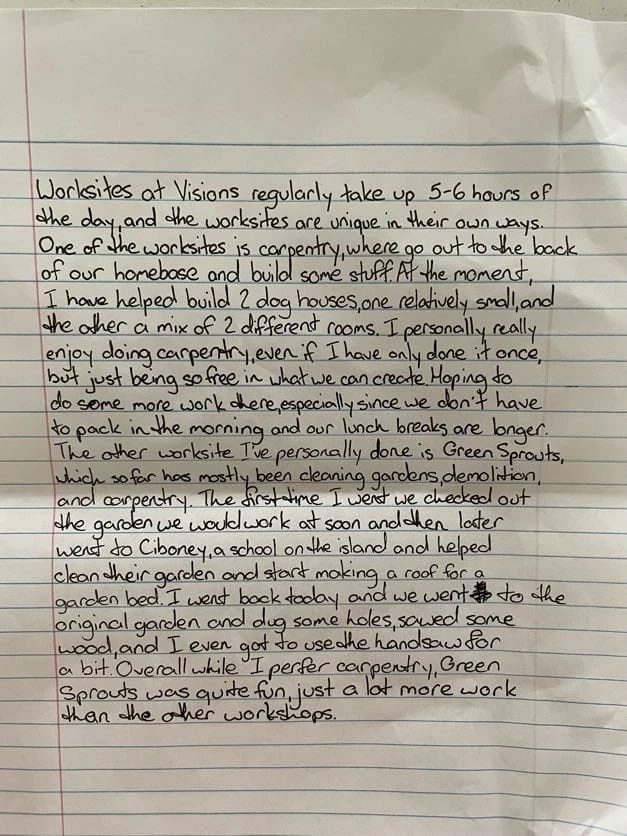 Worksites at Visions regularly take up 5-6 hours of
the day, and the worksites are unique in their own ways.
One of the worksites is carpentry, where go out to the back
of our homebase and build some stuff. At the moment,
I have helped build 2 dog houses, one relatively small, and
the other a mix of 2 different rooms. I personally really
enjoy doing carpentry, even if I have only done it once,
but just being so free in what we can create. Hoping to
do some more work there, especially since we don't have
to pack in the morning and our lunch breaks are longer.
The other worksite I've personally done is Green Sprouts,
which so far has mostly been cleaning gardens, demolition,
and carpentry. The first time I went we checked out
the garden we would work at soon and then later
went to Ciboney, a school on the island and helped
clean their garden and start making a roof for a
garden bed. I went back today and we went to the
original garden and dug some holes, sawed some
wood, and I even got to use the handsaw for
a bit. Overall while I perfer carpentry, Green
Sprouts was quite fun, just a lot more work
than the other workshops.